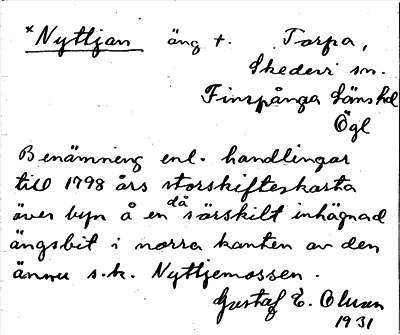 *Nyttjan äng t. Torpa,
Skedevi sn.
Finspånga Länshd
Ögl
Benämning enl. handlingar
till 1798 års storskifteskarta
över byn å en då särskilt inhägnad
ängsbit i norra kanten av den
ännu s.k. Nyttjemossen.
Gustaf E. Olsson
1931